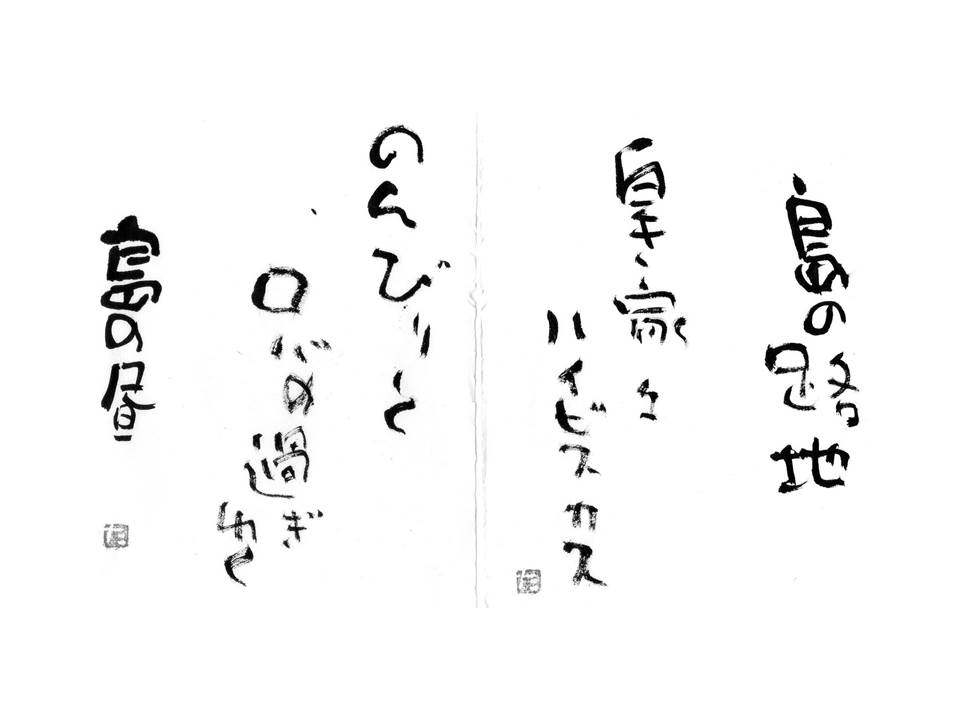 島の路地
白き家々
ハイビスカス
のんびりと
ロバの過ぎ
ゆく
島の昼